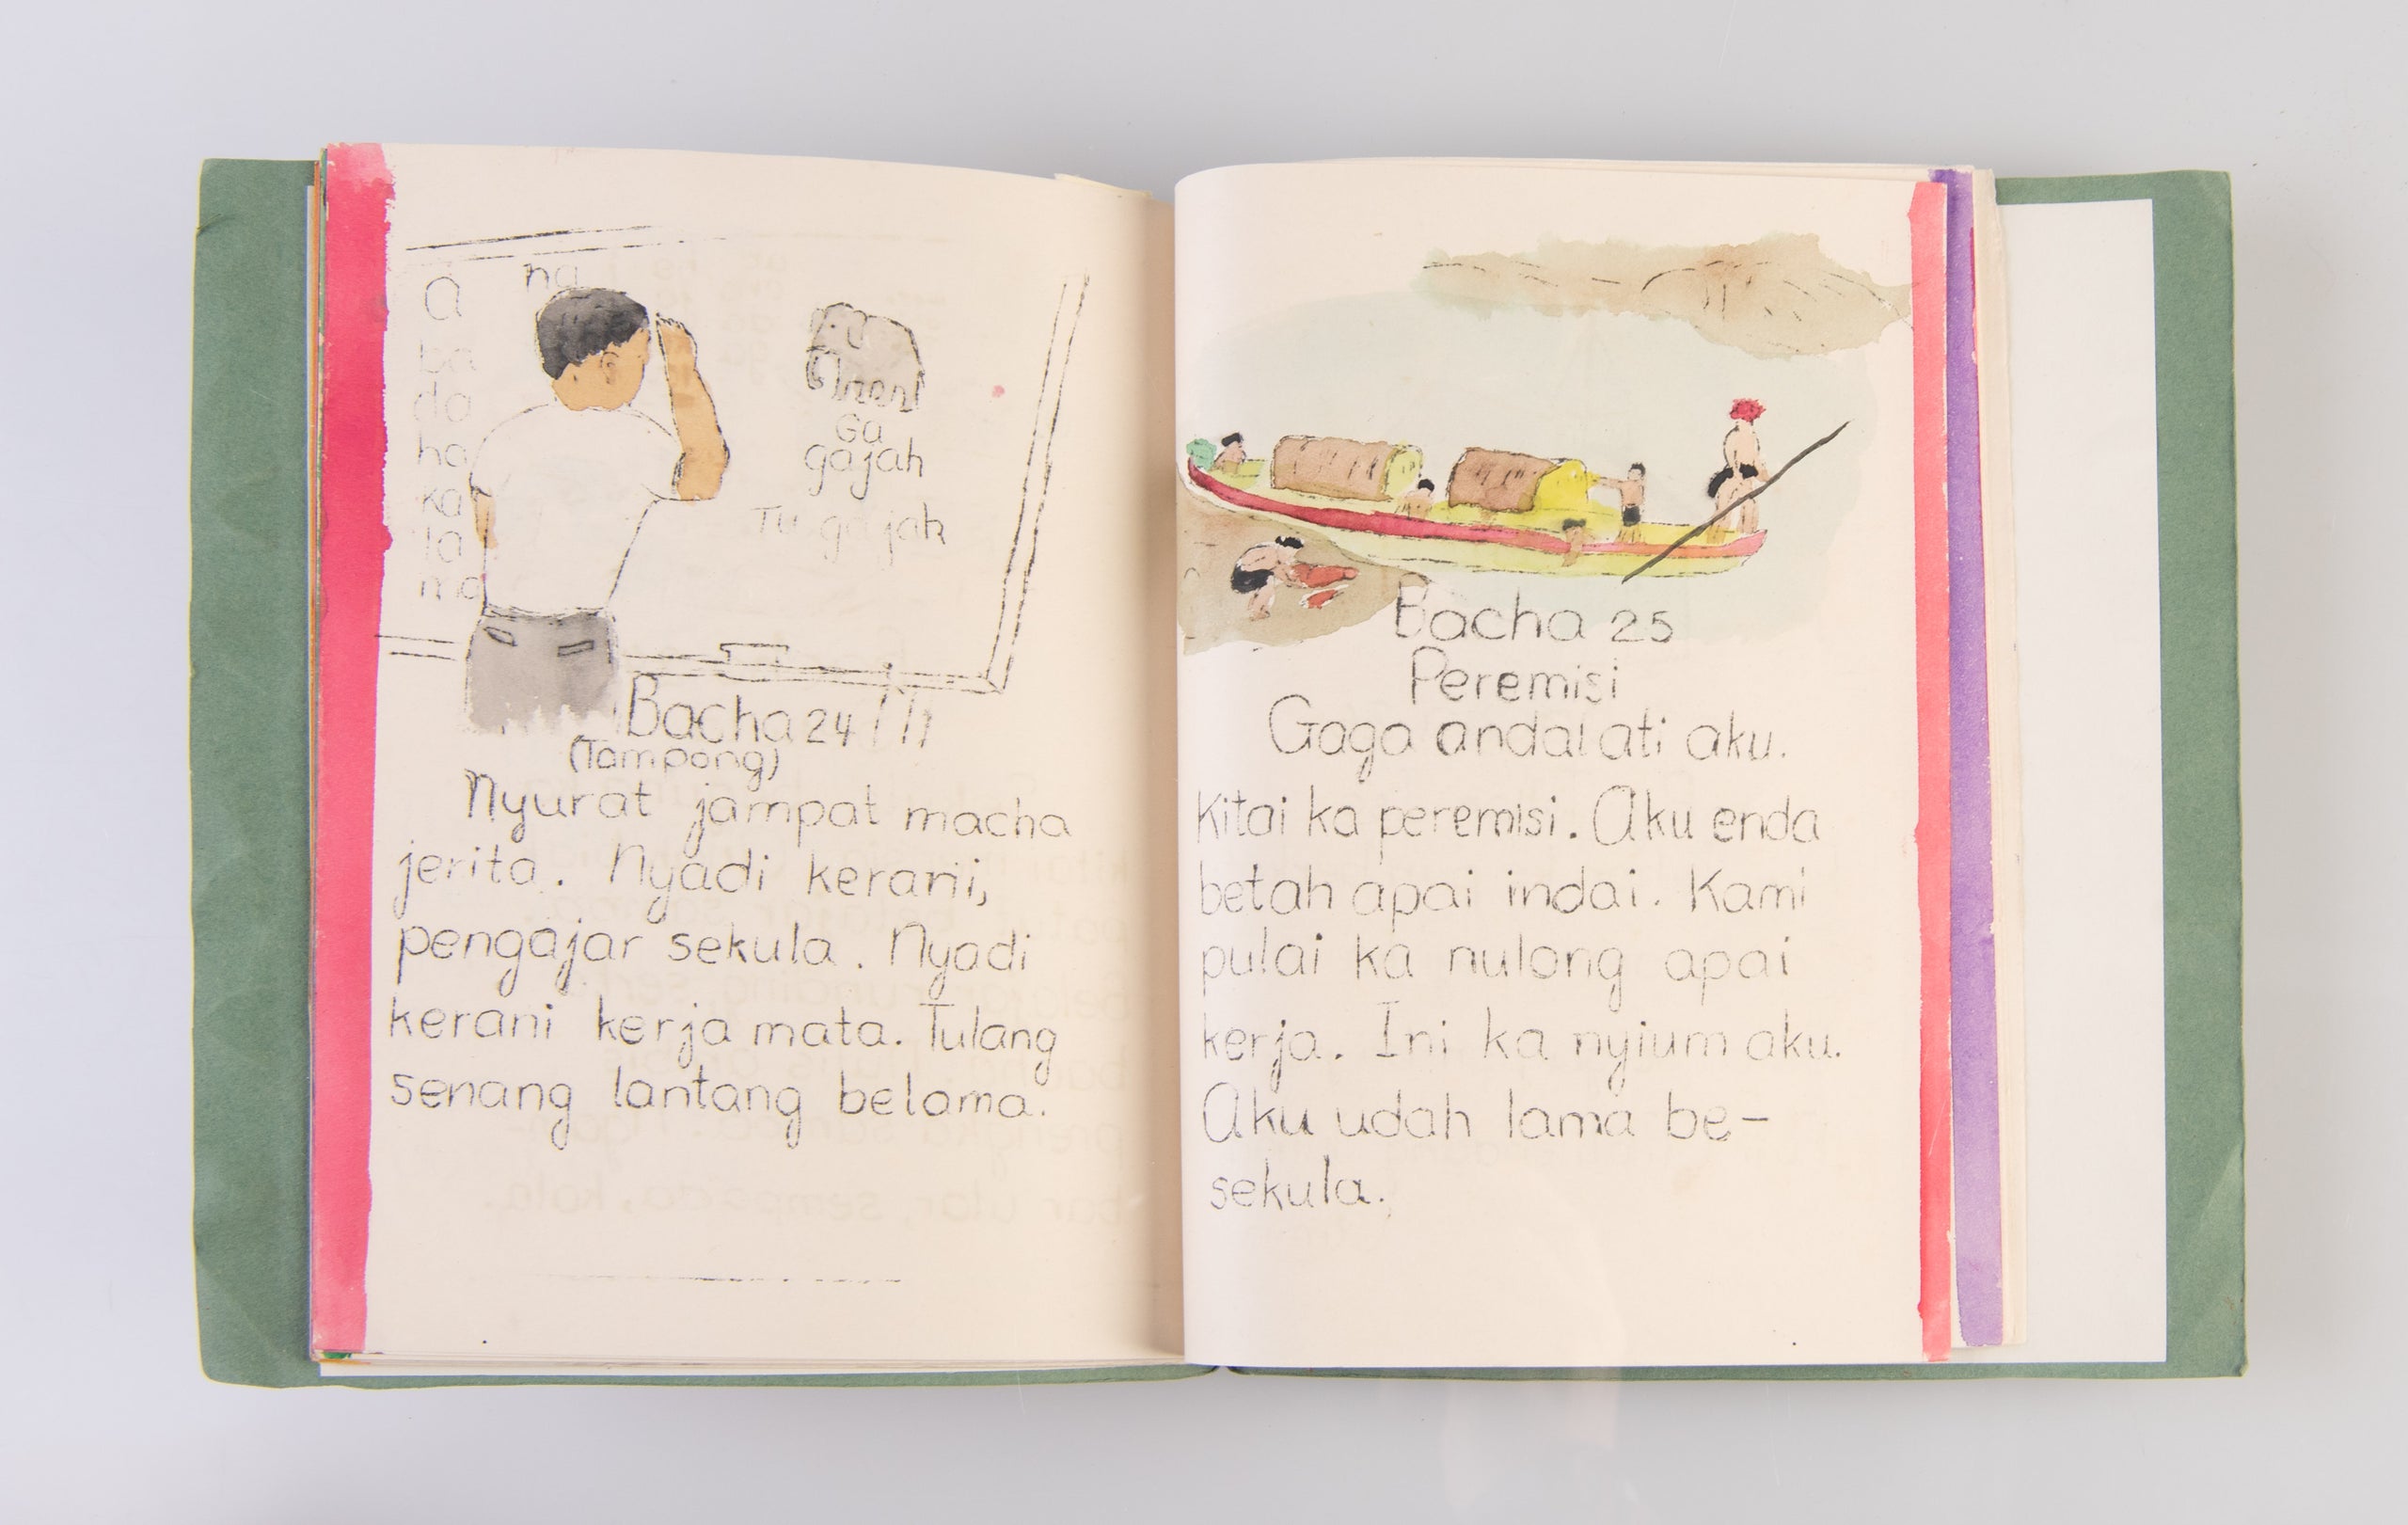 a na
ba
da
ha
ka
la
ma
Ga
gajah
Tu gajah
Bacha 24
(Tampong)
Nyurat jampat macha
jerita. Nyadi kerani,
pengajar sekula. Nyadi
kerani kerja mata. Tulang
senang lantang belama.
Bacha 25
Peremisi
Gaga andal ati aku.
Kitai ka peremisi. Aku enda
betah apai indai. Kami
pulai ka nulong apai
kerja. Ini ka nyium aku.
Aku udah lama be-
sekula.